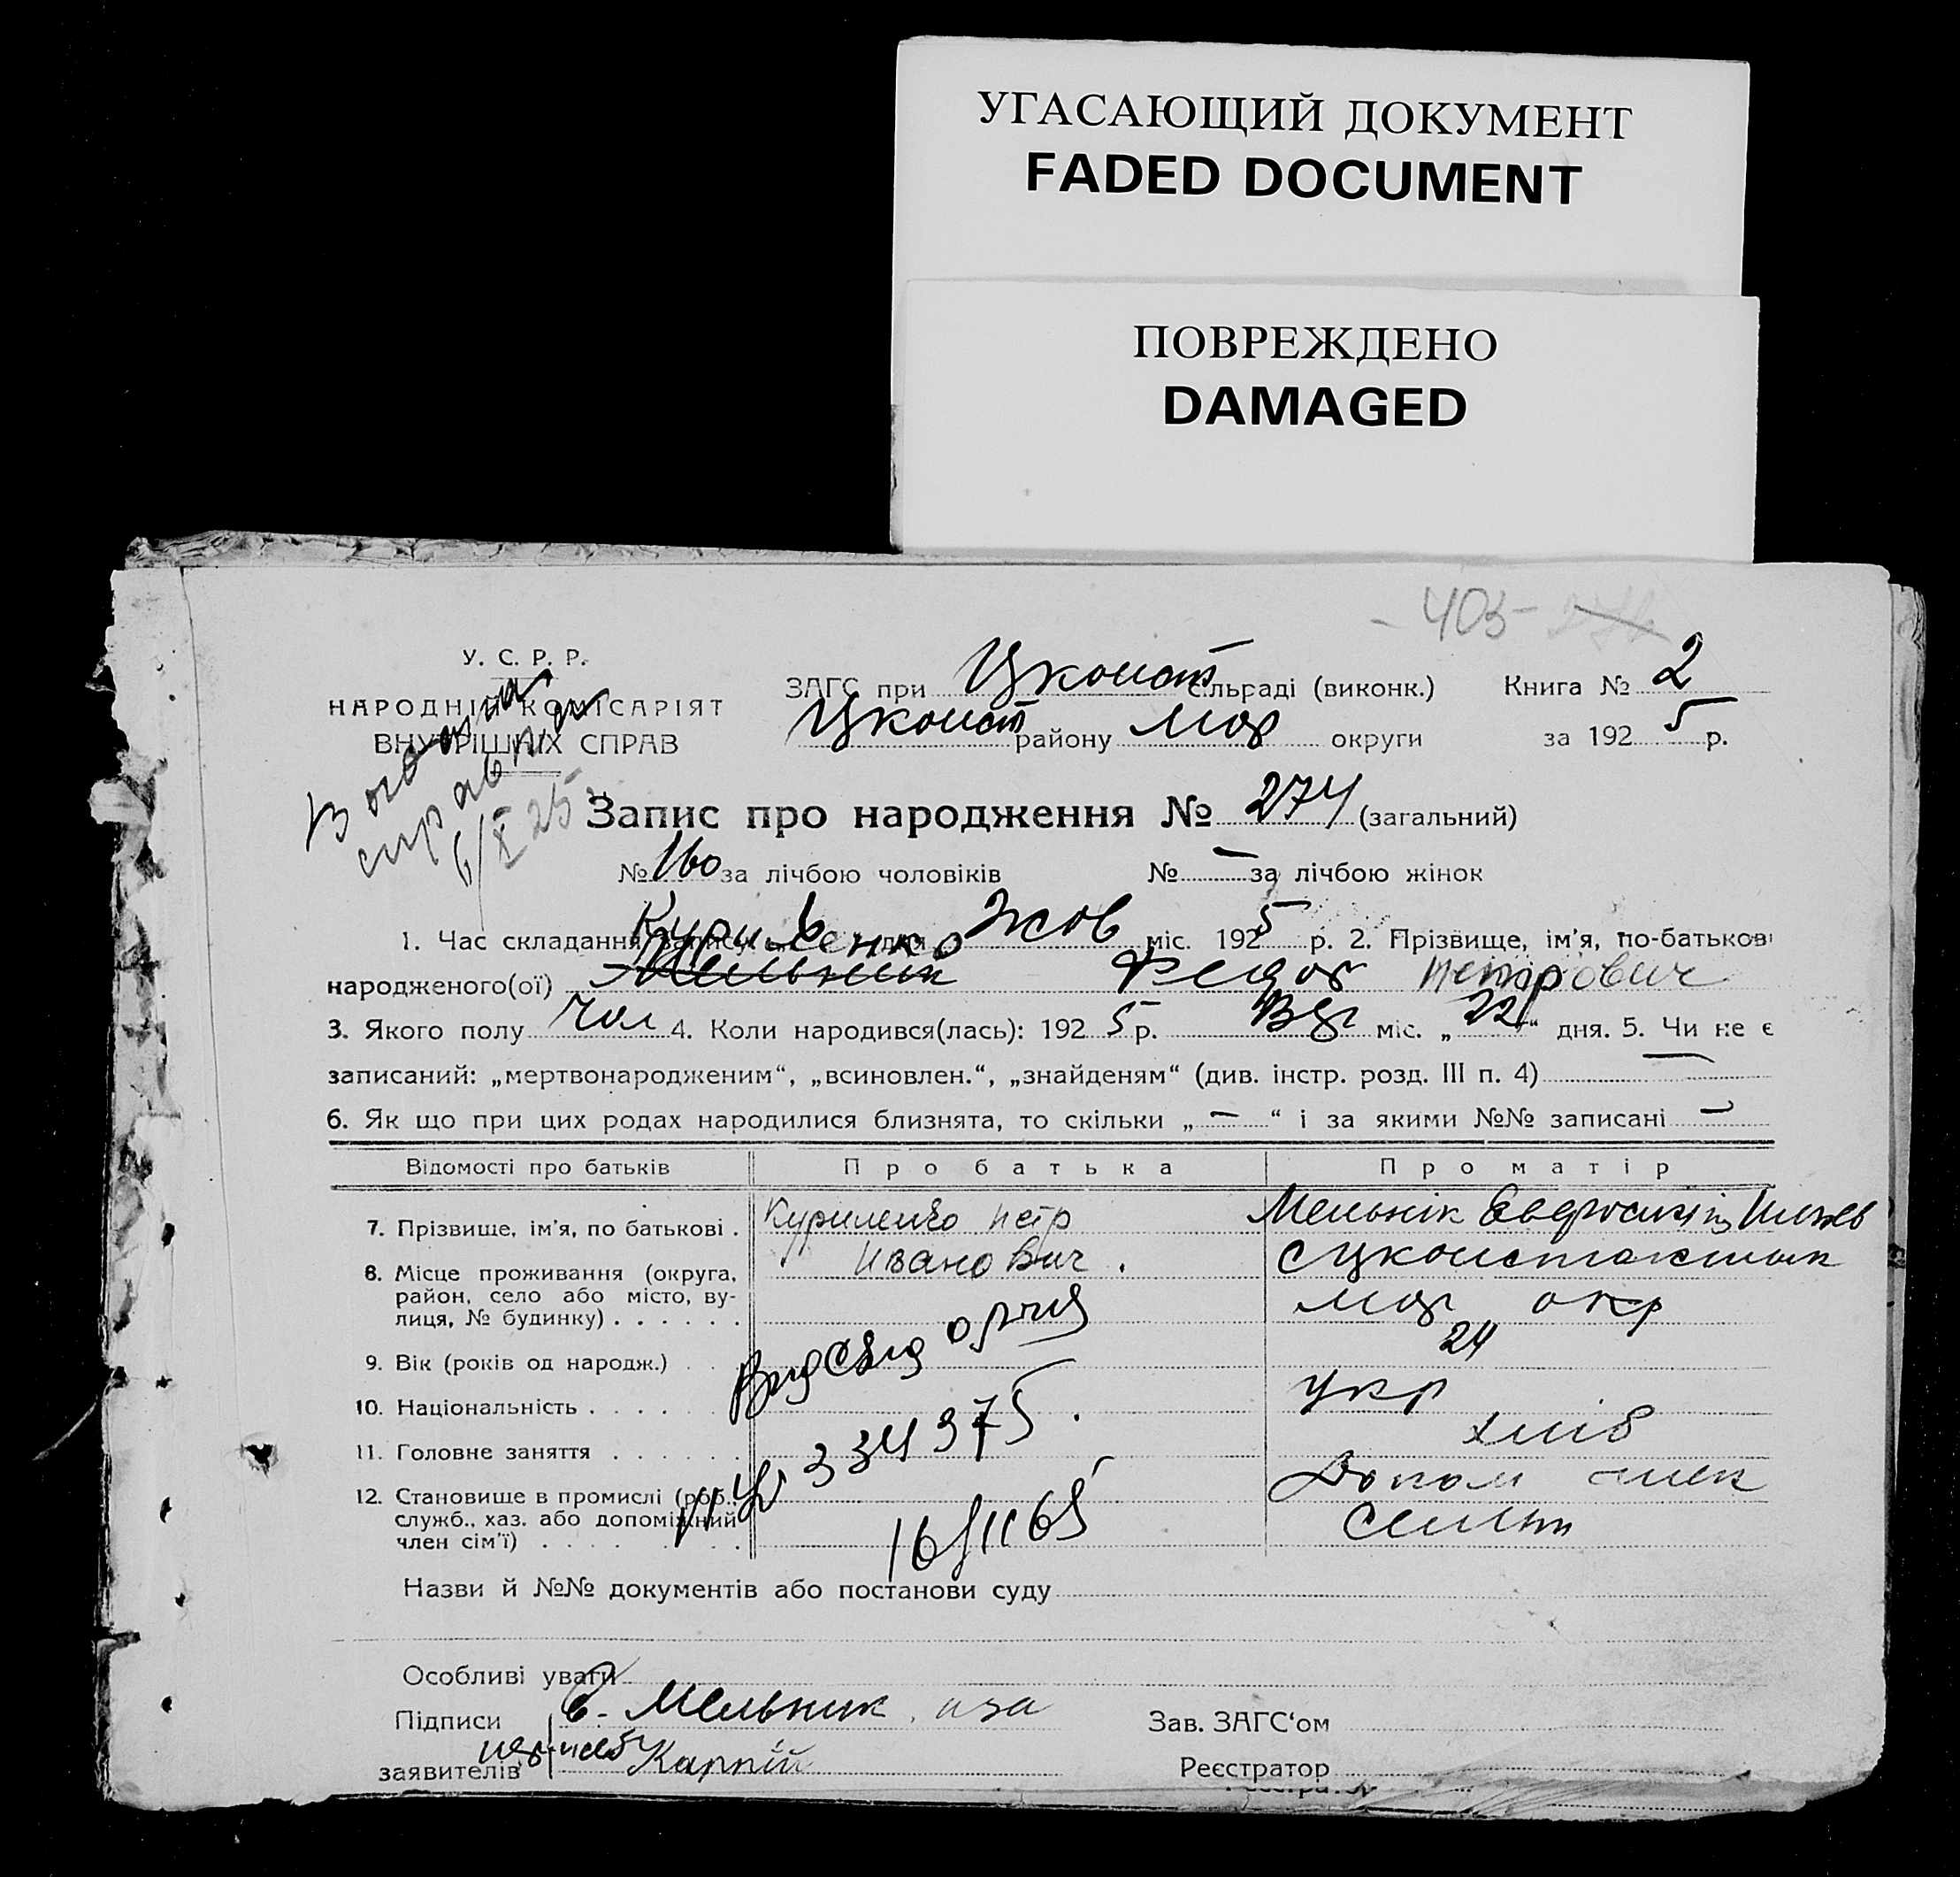 УГАСАЮЩИЙ ДОКУМЕНТ
FADED DOCUMENT
ПОВРЕЖДЕНО
DAMAGED
- 403 -
У. С. Р. Р.
НАРОДНІЙ КОМІСАРІЯТ
ВНУТРІШНІХ СПРАВ
справка
6/X 25
ЗАГС при Цконст сільраді (виконк.) Книга № 2
Цконст району мар округи за 1925 р.
Запис про народження № 274 (загальний)
№ 160 за лічбою чоловіків № — за лічбою жінок
1. Час складання запису 6 дня Жов міс. 1925 р. 2. Прізвище, ім'я, по-батькові
Куриленко
народженого(ої) Мельник Федор Петрович
3. Якого полу чол 4. Коли народився(лась): 1925 р. Вер міс. „22“ дня. 5. Чи не є
записаний: „мертвонародженим“, „всиновлен.“, „знайденям“ (див. інстр. розд. III п. 4) —
6. Як що при цих родах народилися близнята, то скільки „—“ і за якими №№ записані —
Відомості про батьків Про батька Про матір
7. Прізвище, ім'я, по батькові . Куриленко Петр Иванович . Мельнік
8. Місце проживання (округа, район, село або місто, вулиця, № будинку) . . . . . . с Цконстантин мар окр
9. Вік (років од народж.) . . . 24
10. Національність . . . . . . укр
11. Головне заняття . . . . . . хліб
12. Становище в промислі (роб., служб., хаз. або допоміжний член сім'ї) . . . . . . Допом член семьи
334375.
16/II 65
Назви й №№ документів або постанови суду
Особливі уваги
Підписи Є. Мельник, а за
заявителів Карпій
Зав. ЗАГС‘ом
Реєстратор